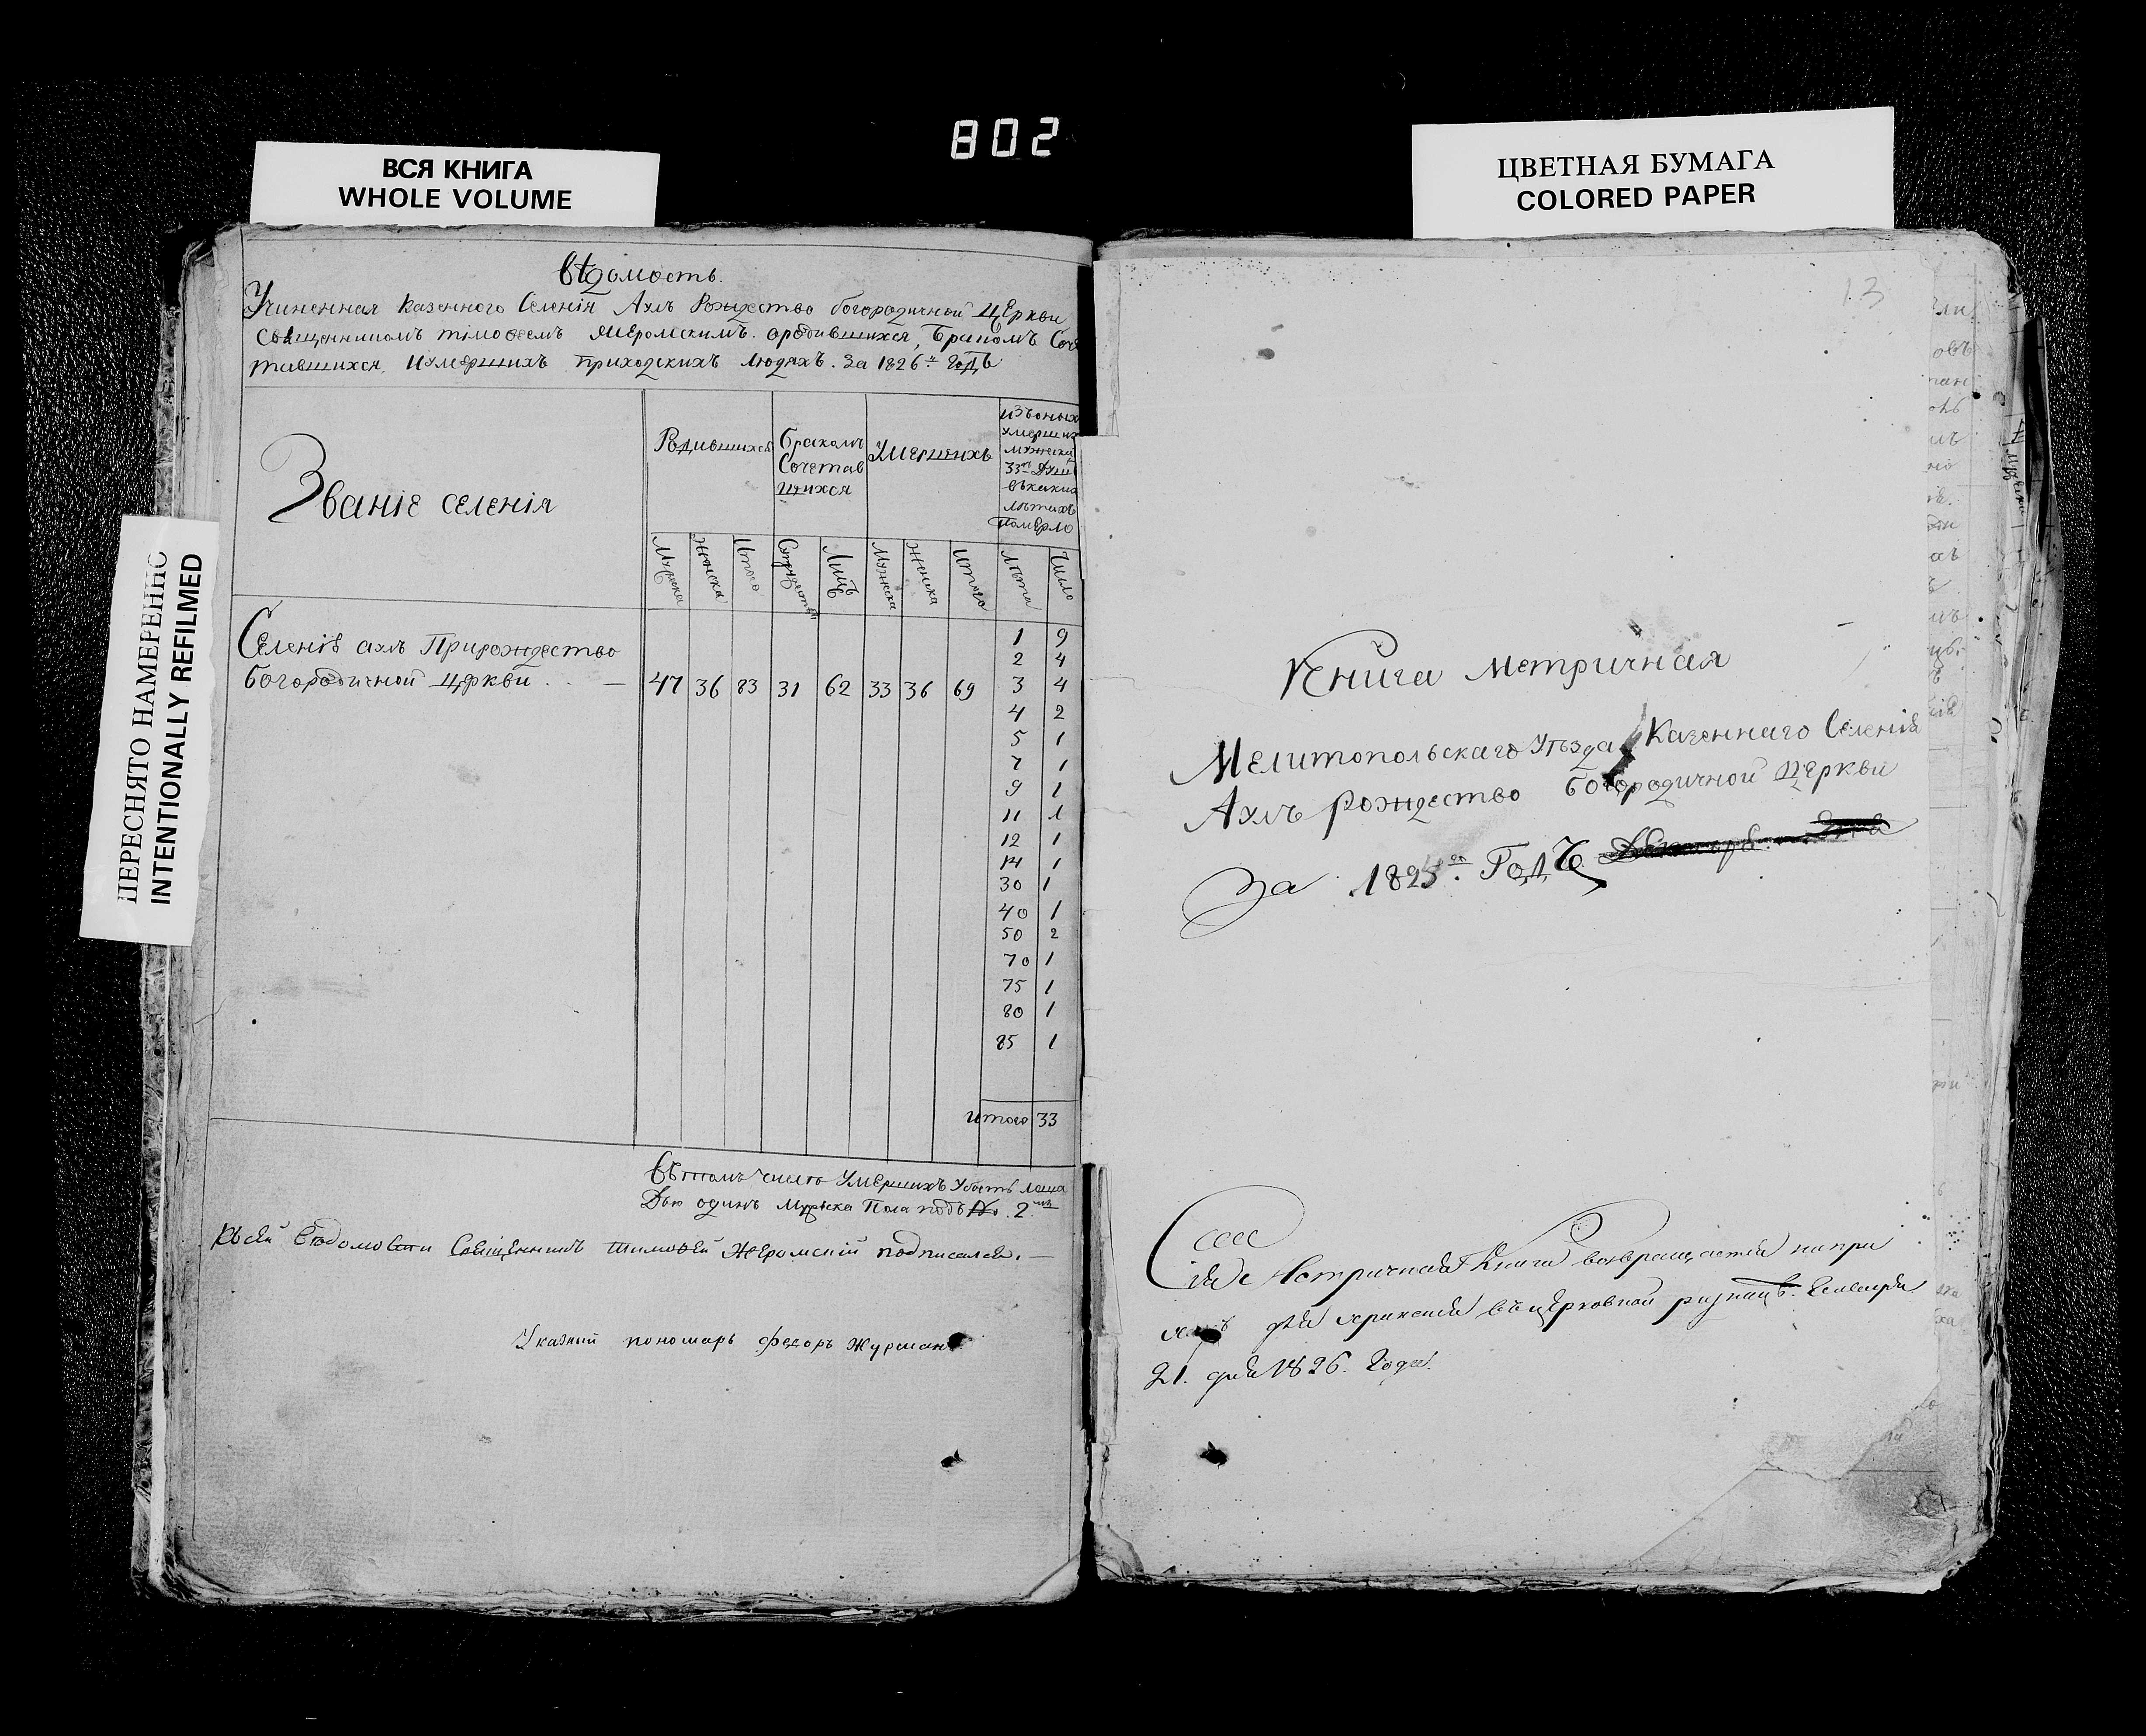 802
ВСЯ КНИГА
WHOLE VOLUME
ЦВЕТНАЯ БУМАГА
COLORED PAPER
ПЕРЕСНЯТО НАМЕРЕННО
INTENTIONALLY REFILMED
Вѣдомость.
Учиненная казенного Селенія Ахъ Рождество богородичной Церкви
Священникомъ тімоѳеемъ Жеромскимъ. ородившихся, Бракомъ Соче
тавшихся, Иумершихъ приходскихъ людяхъ. За 1826й Годъ
Званіе селенія
Родившихся
Бракомъ
Сочетав
шихся
Умершихъ
изъоныхъ
умершихъ
мужеска
33хъ Душ
въкакихъ
лѣтахъ
Померло
Мужска
Женска
Итого
Лицъ
Мужска
Женска
Итого
Лѣта
Число
Селеніе ахъ Прирождество
богородичной Церкви . . —
47 36 83 31 62 33 36 69
1 9
2 4
3 4
4 2
5 1
7 1
9 1
11 1
12 1
14 1
30 1
40 1
50 2
70 1
75 1
80 1
85 1
Итого 33
Вътомъ числѣ Умершихъ Убитъ Лоша
Дью одинъ Мужска Пола подъ № 2мъ
Ксей Вѣдомости Священникъ Тимоѳей Жеромскій подписался. —
Указный пономарь Федоръ
13
Книга Метричная
Мелитопольскаго Уѣзда Казеннаго Селенія
Ахъ Рождество Богородичной Церкви
За 1825й Годъ
Сія Метричная Книга возвращается напри
для храненія въцерковной ризницѣ.
21. дня 1826. Года.